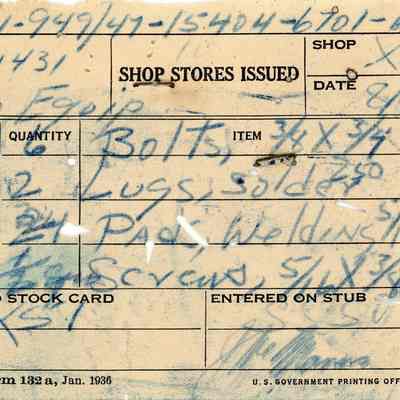 1-949/47-15404-6701-
1431 SHOP STORES ISSUED SHOP X
Equip DATE 8/
QUANTITY ITEM
6 Bolts, 3/8 X 3/4
2 Lugs, Solder 250
24 Pads, Welding
Screws, 5/16 X 3/4
STOCK CARD ENTERED ON STUB
rm 132 a, Jan. 1936 U. S. GOVERNMENT PRINTING OFF